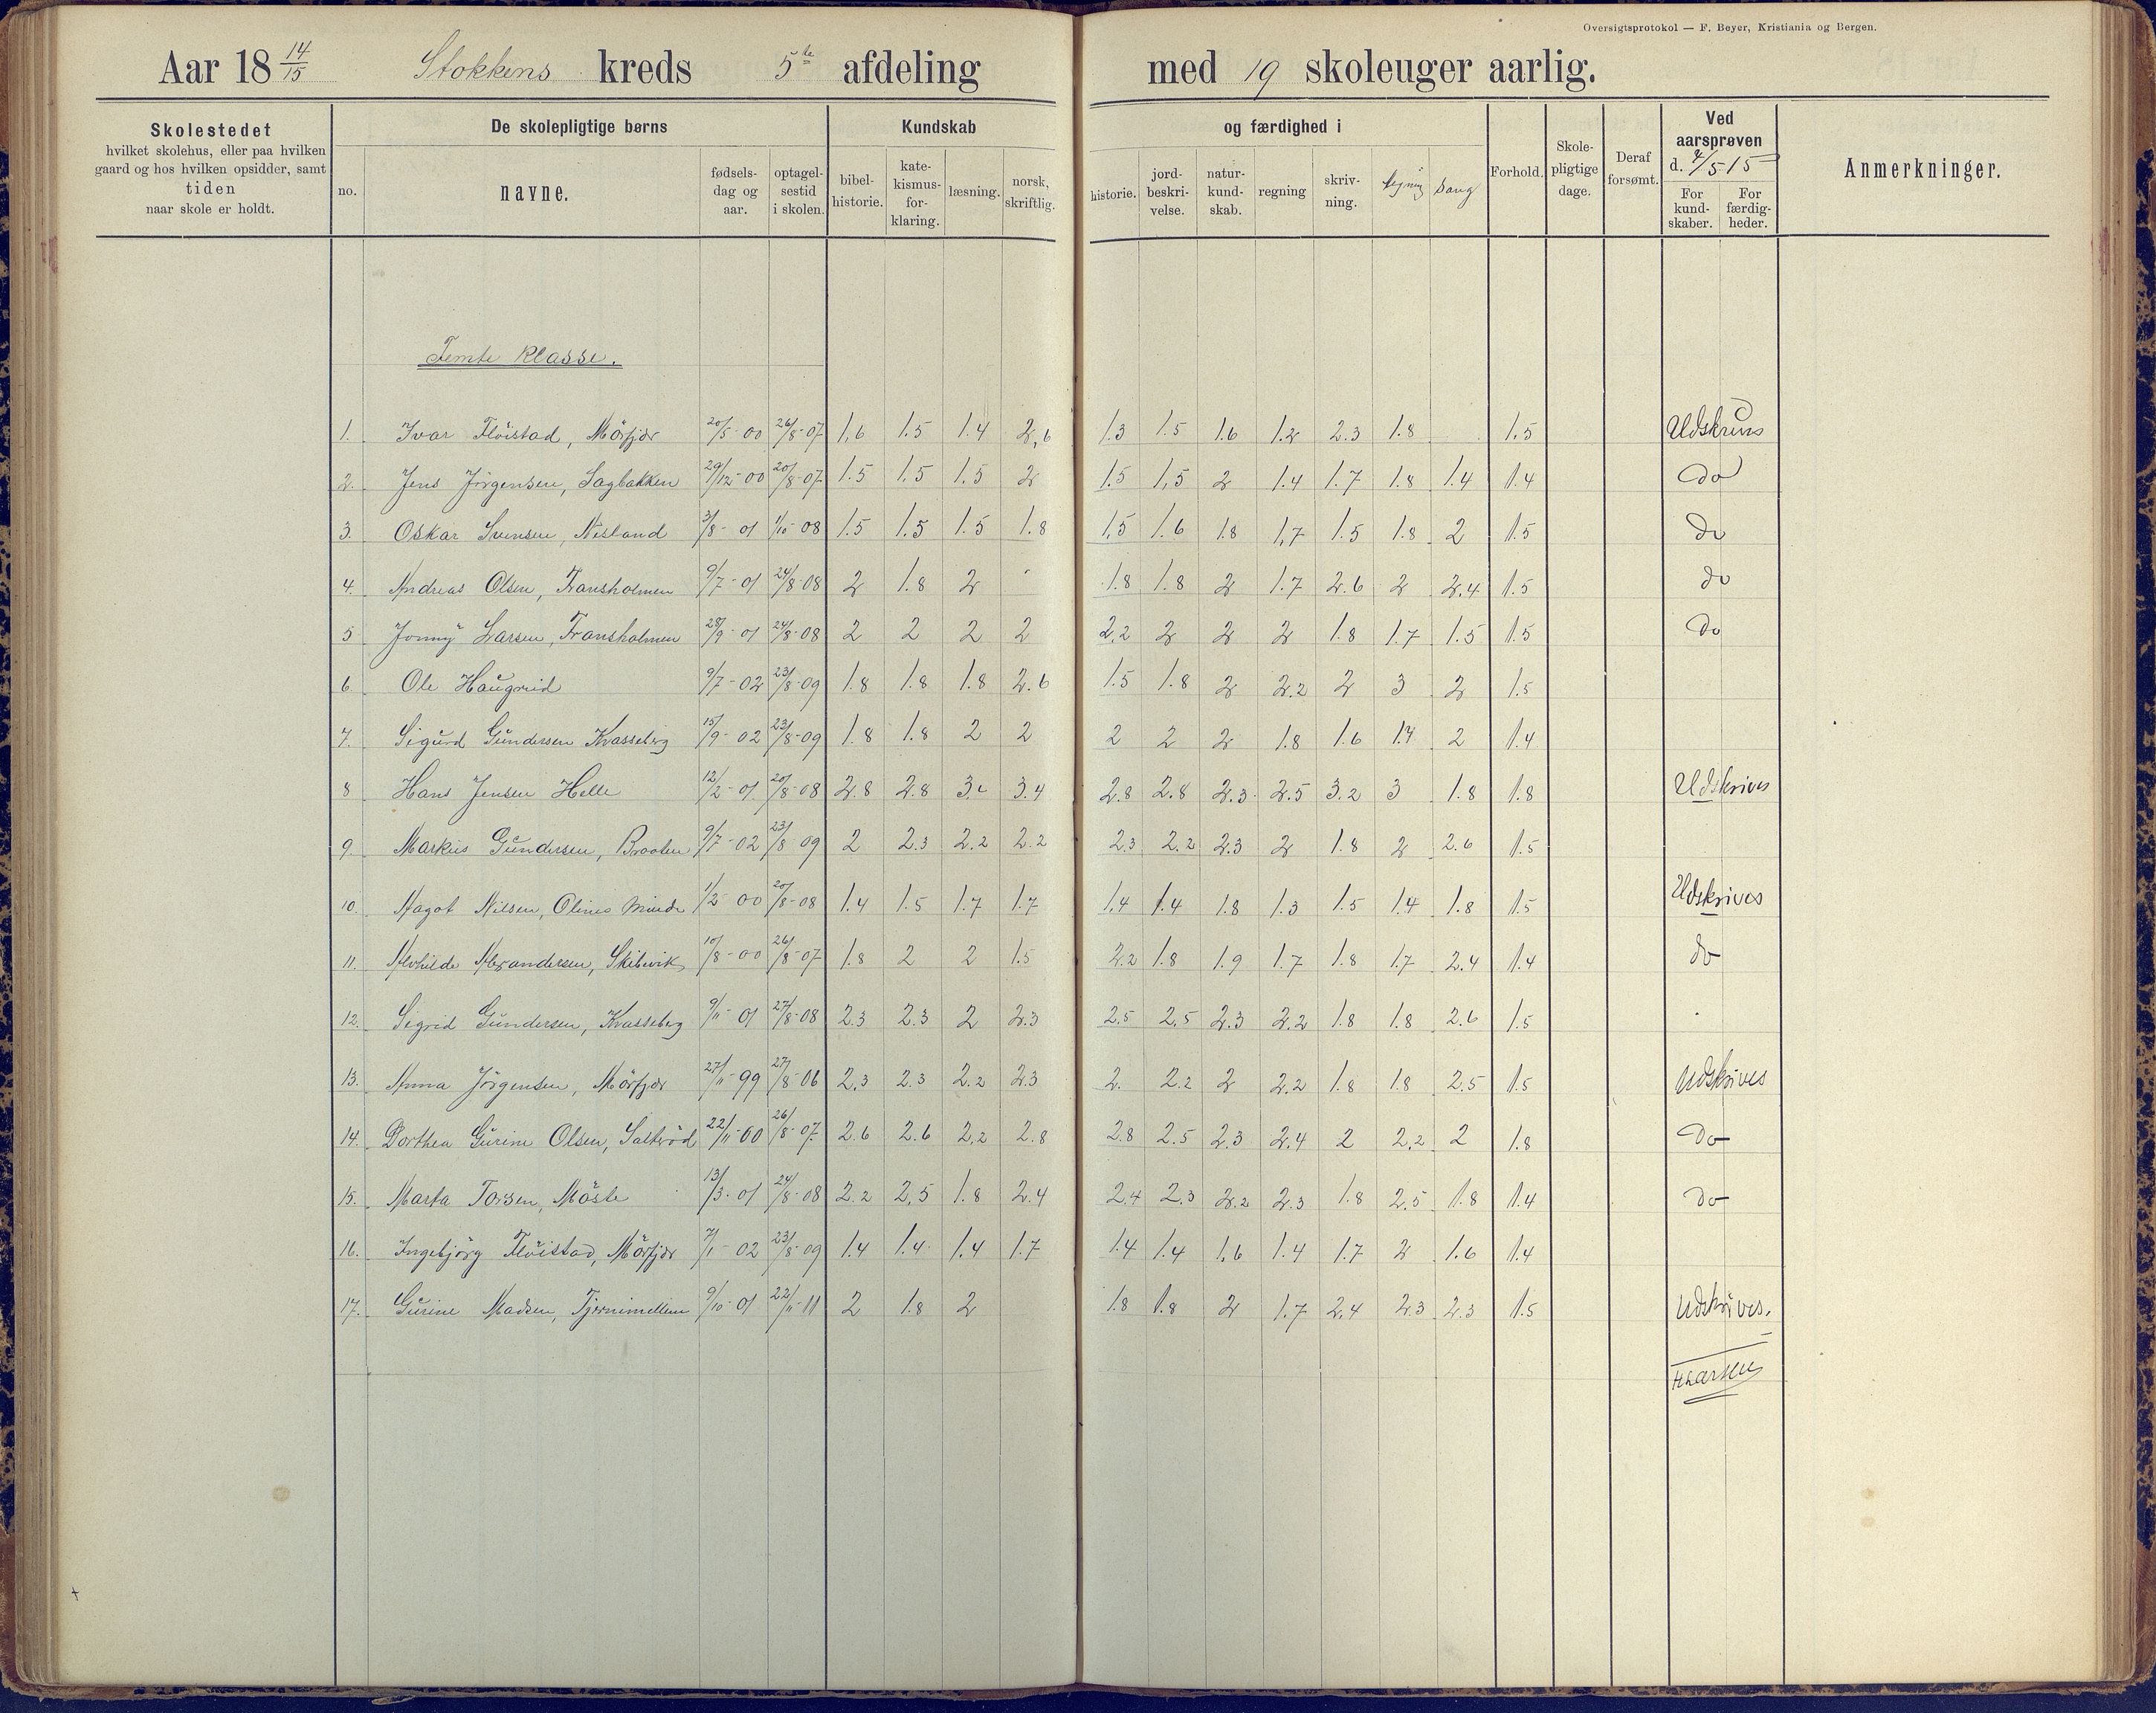 Oversigtsprotokol — F. Beyer, Kristiania og Bergen.
Aar 18 14/15 Stokkens kreds 5te afdeling med 19 skoleuger aarlig.
Skolestedet hvilket skolehus, eller paa hvilken gaard og hos hvilken opsidder, samt tiden naar skole er holdt.
De skolepligtige børns
no. navne. fødselsdag og aar. optagelsestid i skolen.
Kundskab og færdighed i
bibelhistorie. katekismusforklaring. læsning. norsk, skriftlig. historie. jordbeskrivelse. naturkundskab. regning skrivning. tegning sang
Forhold. Skolepligtige dage. Deraf forsømt.
Ved aarsprøven d. 4/5-15
For kundskaber. For færdigheder.
Anmerkninger.
Femte klasse.
1. Ivar Flöistad, Mörfjær 20/5-00 26/8-07 1,6 1.5 1.4 2,6 1.3 1.5 1.6 1.2 2.3 1.8 1.5 Udskrives
2. Jens Jörgensen, Sagbakken 29/12-00 20/8-07 1.5 1,5 1.5 2 1.5 1,5 2 1.4 1.7 1.8 1.4 1.4 do
3. Oskar Svensen, Nesland 3/8-01 1/10-08 1.5 1.5 1.5 1.8 1,5 1.6 1.8 1,7 1.5 1.8 2 1.5 do
4. Andreas Olsen, Fransholmen 9/7-01 24/8-08 2 1.8 2 1.8 1.8 2 1.7 2.6 2 2.4 1.5 do
5 Jonny Larsen, Fransholmen 28/9-01 24/8-08 2 2 2 2 2,2 2 2 2 1.8 1.7 1.5 1.5 do
6. Ole Haugreid 9/7-02 23/8-09 1.8 1.8 1.8 2.6 1.5 1.8 2 2.2 2 3 2 1.5
7. Sigurd Gundersen Kvasseberg 15/9-02 23/8-09 1.8 1.8 2 2 2 2 2 1.8 1.6 1.4 2 1.4
8 Hans Jensen Helle 12/2-01 20/8-08 2.8 2.8 3. 3.4 2.8 2.8 2.3 2.5 3.2 3 1.8 1.8 Udskrives
9. Markus Gundersen, Braaten 9/7-02 23/8-09 2 2.3 2.2 2.2 2.3 2.2 2.3 2 1.8 2 2.6 1.5
10. Aagot Nilsen, Olines Minde 1/2-00 20/8-08 1.4 1.5 1.7 1.7 1,4 1.4 1.8 1.3 1.5 1.4 1.8 1.5 Udskrives
11. Alvhilde Alexandersen, Skibvik 10/8-00 26/8-07 1.8 2 2 1.5 2.2 1.8 1.9 1.7 1.8 1.7 2.4 1.4 do
12. Sigrid Gundersen, Kvasseberg 9/11-01 27/8-08 2.3 2.3 2 2.3 2.5 2,5 2.3 2.2 1.8 1.8 2.6 1.5
13. Anna Jörgensen, Mörfjær 27/11-99 27/8-06 2,3 2.3 2.2 2.3 2. 2.2 2 2.2 1.8 1.8 2.5 1.5 Udskrives
14. Dorthea Gurine Olsen, Saltröd 22/11-00 26/8-07 2.6 2.6 2.2 2.8 2.8 2.5 2.3 2.4 2 2.2 2 1.8 do
15. Marta Torsen, Möste 13/3-01 24/8-08 2.2 2,5 1.8 2.4 2.4 2.3 2.2 2.3 1.8 2.5 1.8 1.4 do
16. Ingebjörg Flöistad, Mörfjær 7/1-02 23/8-09 1.4 1.4 1.4 1.7 1.4 1.4 1,6 1.4 1.7 2 1.6 1.4
17. Gurine Madsen, Tjernimellem 9/10-01 22/11-11 2 1.8 2 1.8 1.8 2 1.7 2.4 2.3 2.3 1.5 Udskrives.
H Larsen